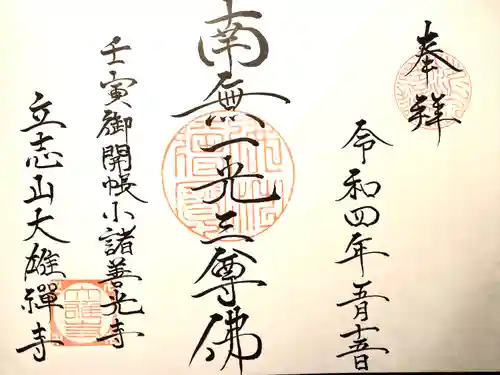 奉拝
令和四年五月十一日
南無一光三尊佛
壬寅御開帳小諸善光寺
立志山大雄禪寺